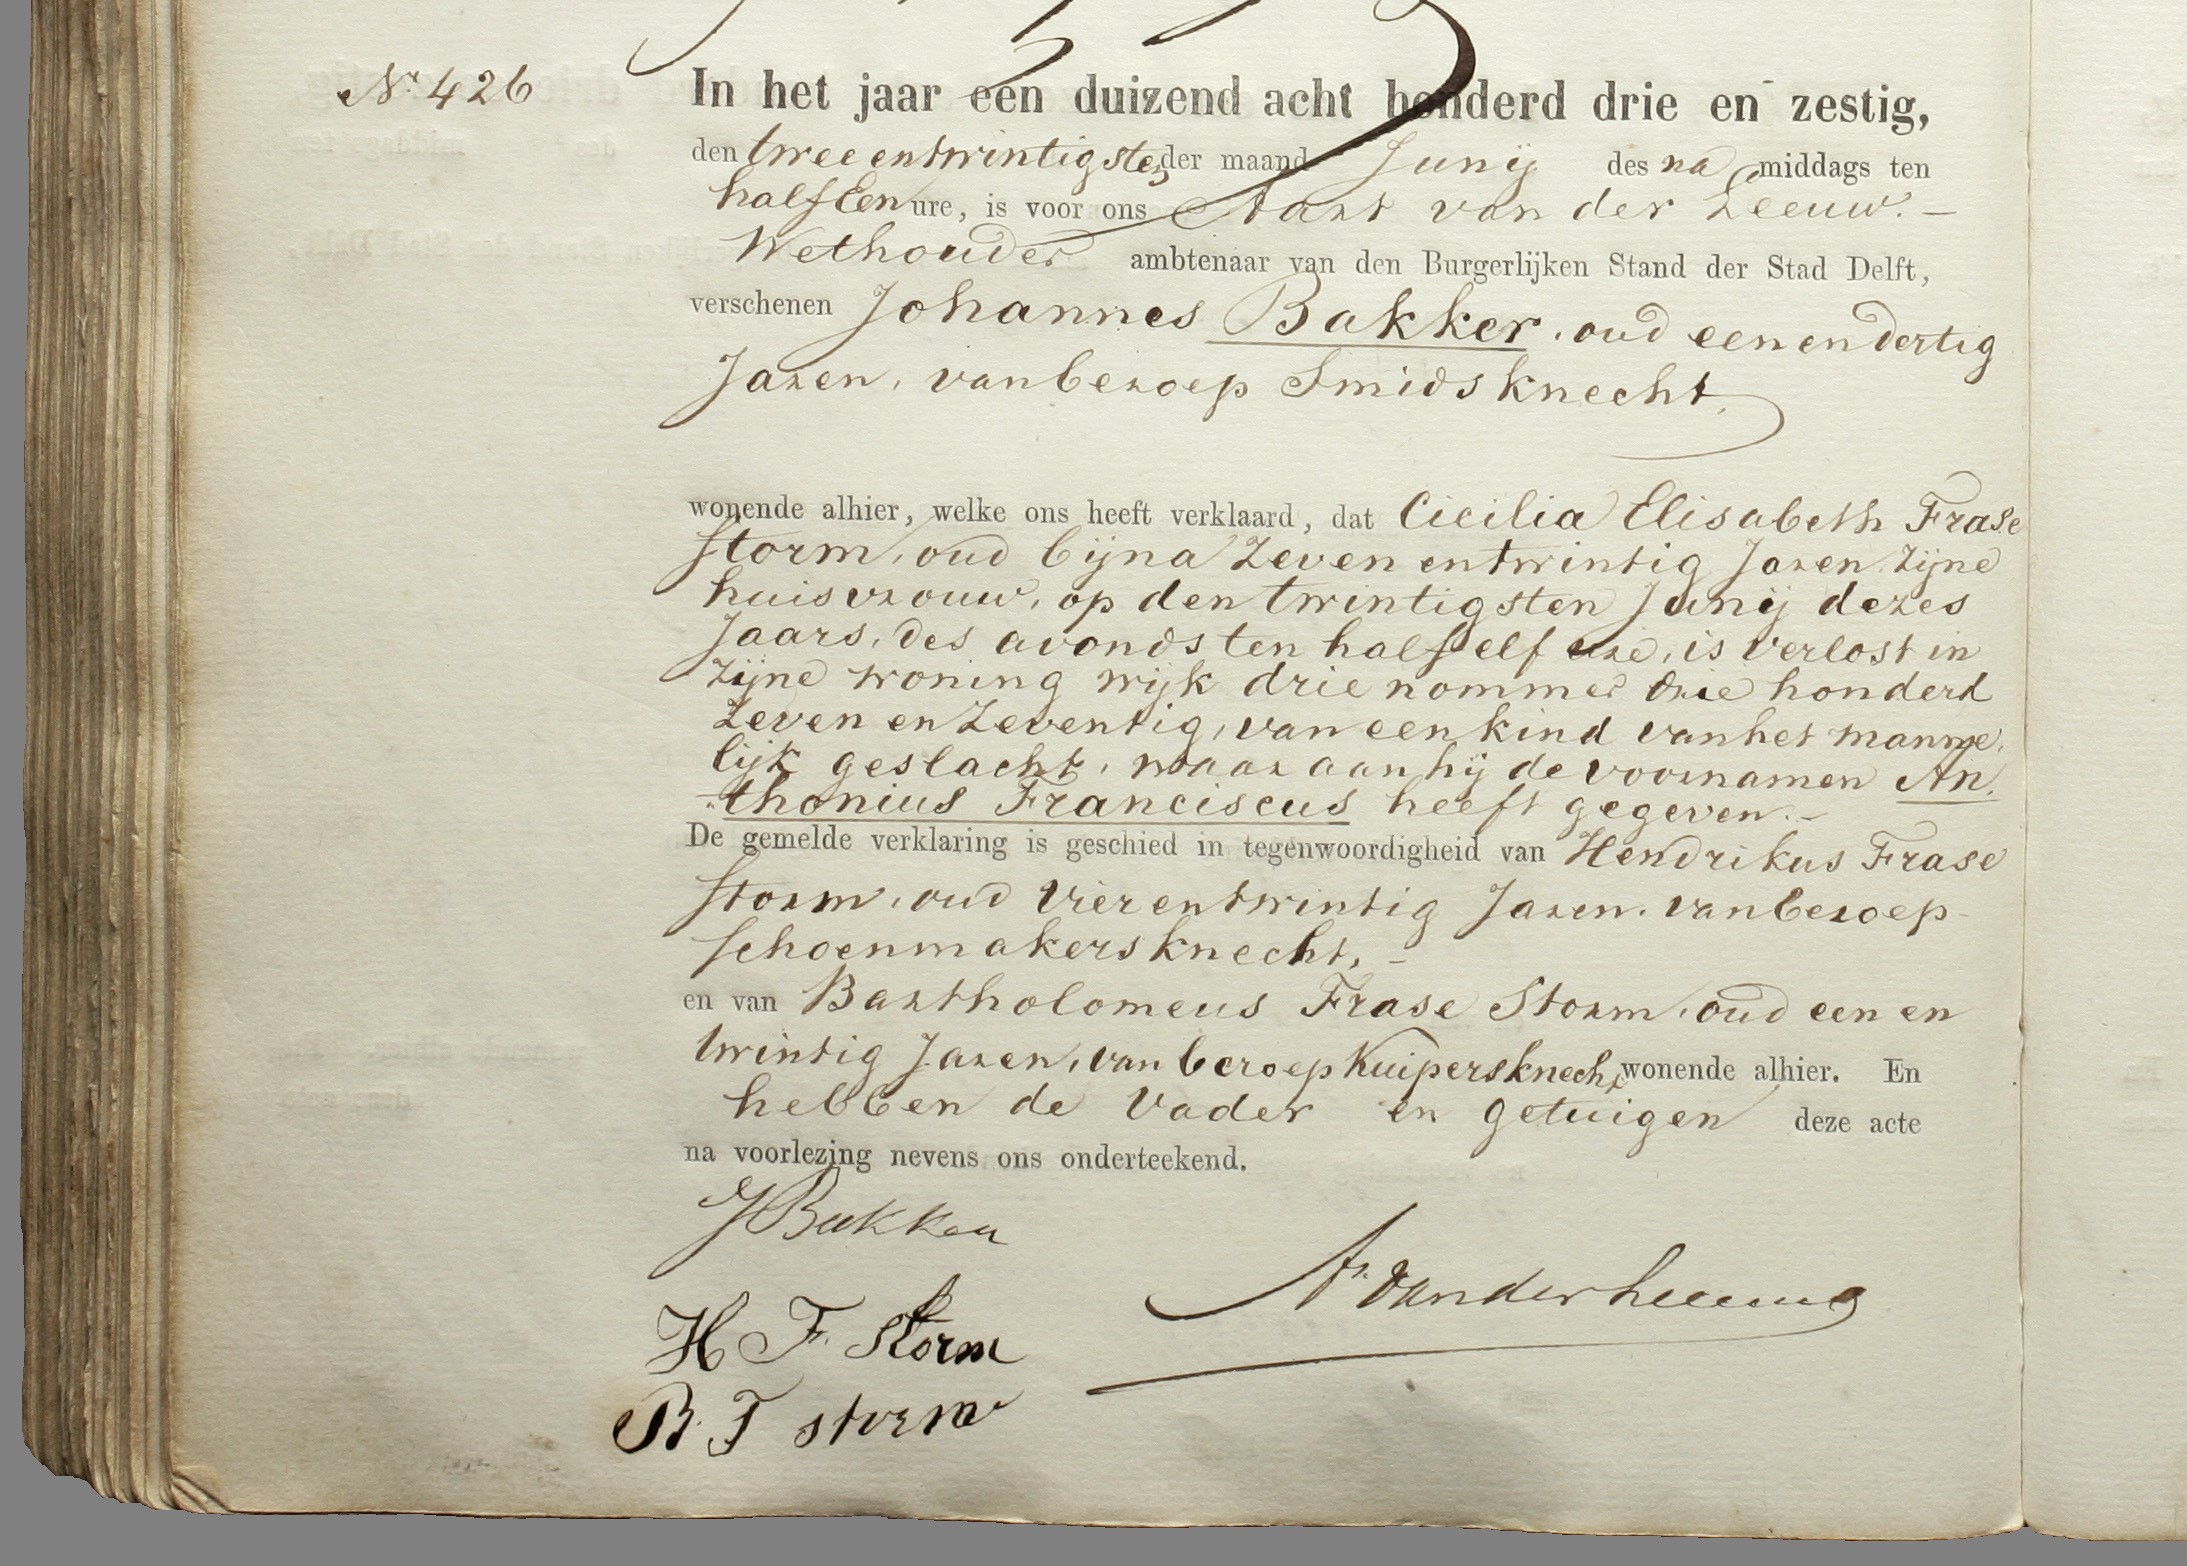 Nr. 426
In het jaar een duizend acht honderd drie en zestig,
den twee en twintigsten der maand Junij des na middags ten
half Een ure, is voor ons Aart van der Leeuw.–
Wethouder ambtenaar van den Burgerlijken Stand der Stad Delft,
verschenen Johannes Bakker, oud een en dertig
Jaren, van beroep Smidsknecht,
wonende alhier, welke ons heeft verklaard, dat Cicilia Elisabeth Frase
Storm, oud bijna Zeven en twintig Jaren zijne
huisvrouw, op den twintigsten Junij dezes
Jaars, des avonds ten half elf ure, is verlost in
zijne woning wijk drie nommer drie honderd
Zeven en Zeventig, van een kind van het manne,
lijk geslacht, waaraan hij de voornamen An,
„thonius Franciscus heeft gegeven.–
De gemelde verklaring is geschied in tegenwoordigheid van Hendrikus Frase
Storm, oud Vier en twintig Jaren, van beroep
Schoenmakersknecht, –
en van Bartholomeus Frase Storm, oud een en
twintig Jaren, van beroep Kuipersknecht wonende alhier. En
hebben de Vader en getuigen deze acte
na voorlezing nevens ons onderteekend.
J Bakker
A. van der Leeuw
H F Storm
B. F storm